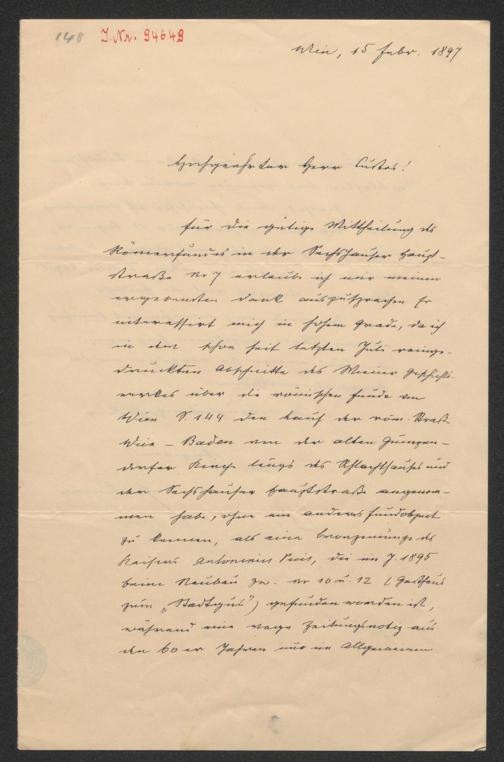 148 J. Nr. 94649
Wien, 15 Febr. 1897
Hochgeehrter Herr Custos!
Für die gütige Mittheilung des
Römerfundes in der Sechshauser Haupt-
straße Nr 7 erlaube ich mir meinen
ergebensten Dank auszusprechen. Er
interessirt mich in hohem Grade, da ich
in dem schon seit letzten Juli reinge-
druckten Abschnitte des Wiener Geschichts-
werkes über die römischen Funde in
Wien S. 144 den Lauf der röm. Straße
Wien – Baden von der alten Gumpen-
dorfer Kirche längs des Schlachthauses und
der Sechshauser Hauptstraße angenom-
men habe, ohne ein anderes Fundobject
zu kennen, als eine Bronzemünze des
Kaisers Antoninus Pius, die im J. 1895
beim Neubau Nr 10 u. 12 (Gasthaus
zum „Stadtgut“) gefunden worden ist,
während eine vage Zeitungsnotiz aus
den 60er Jahren nur im Allgemeinen